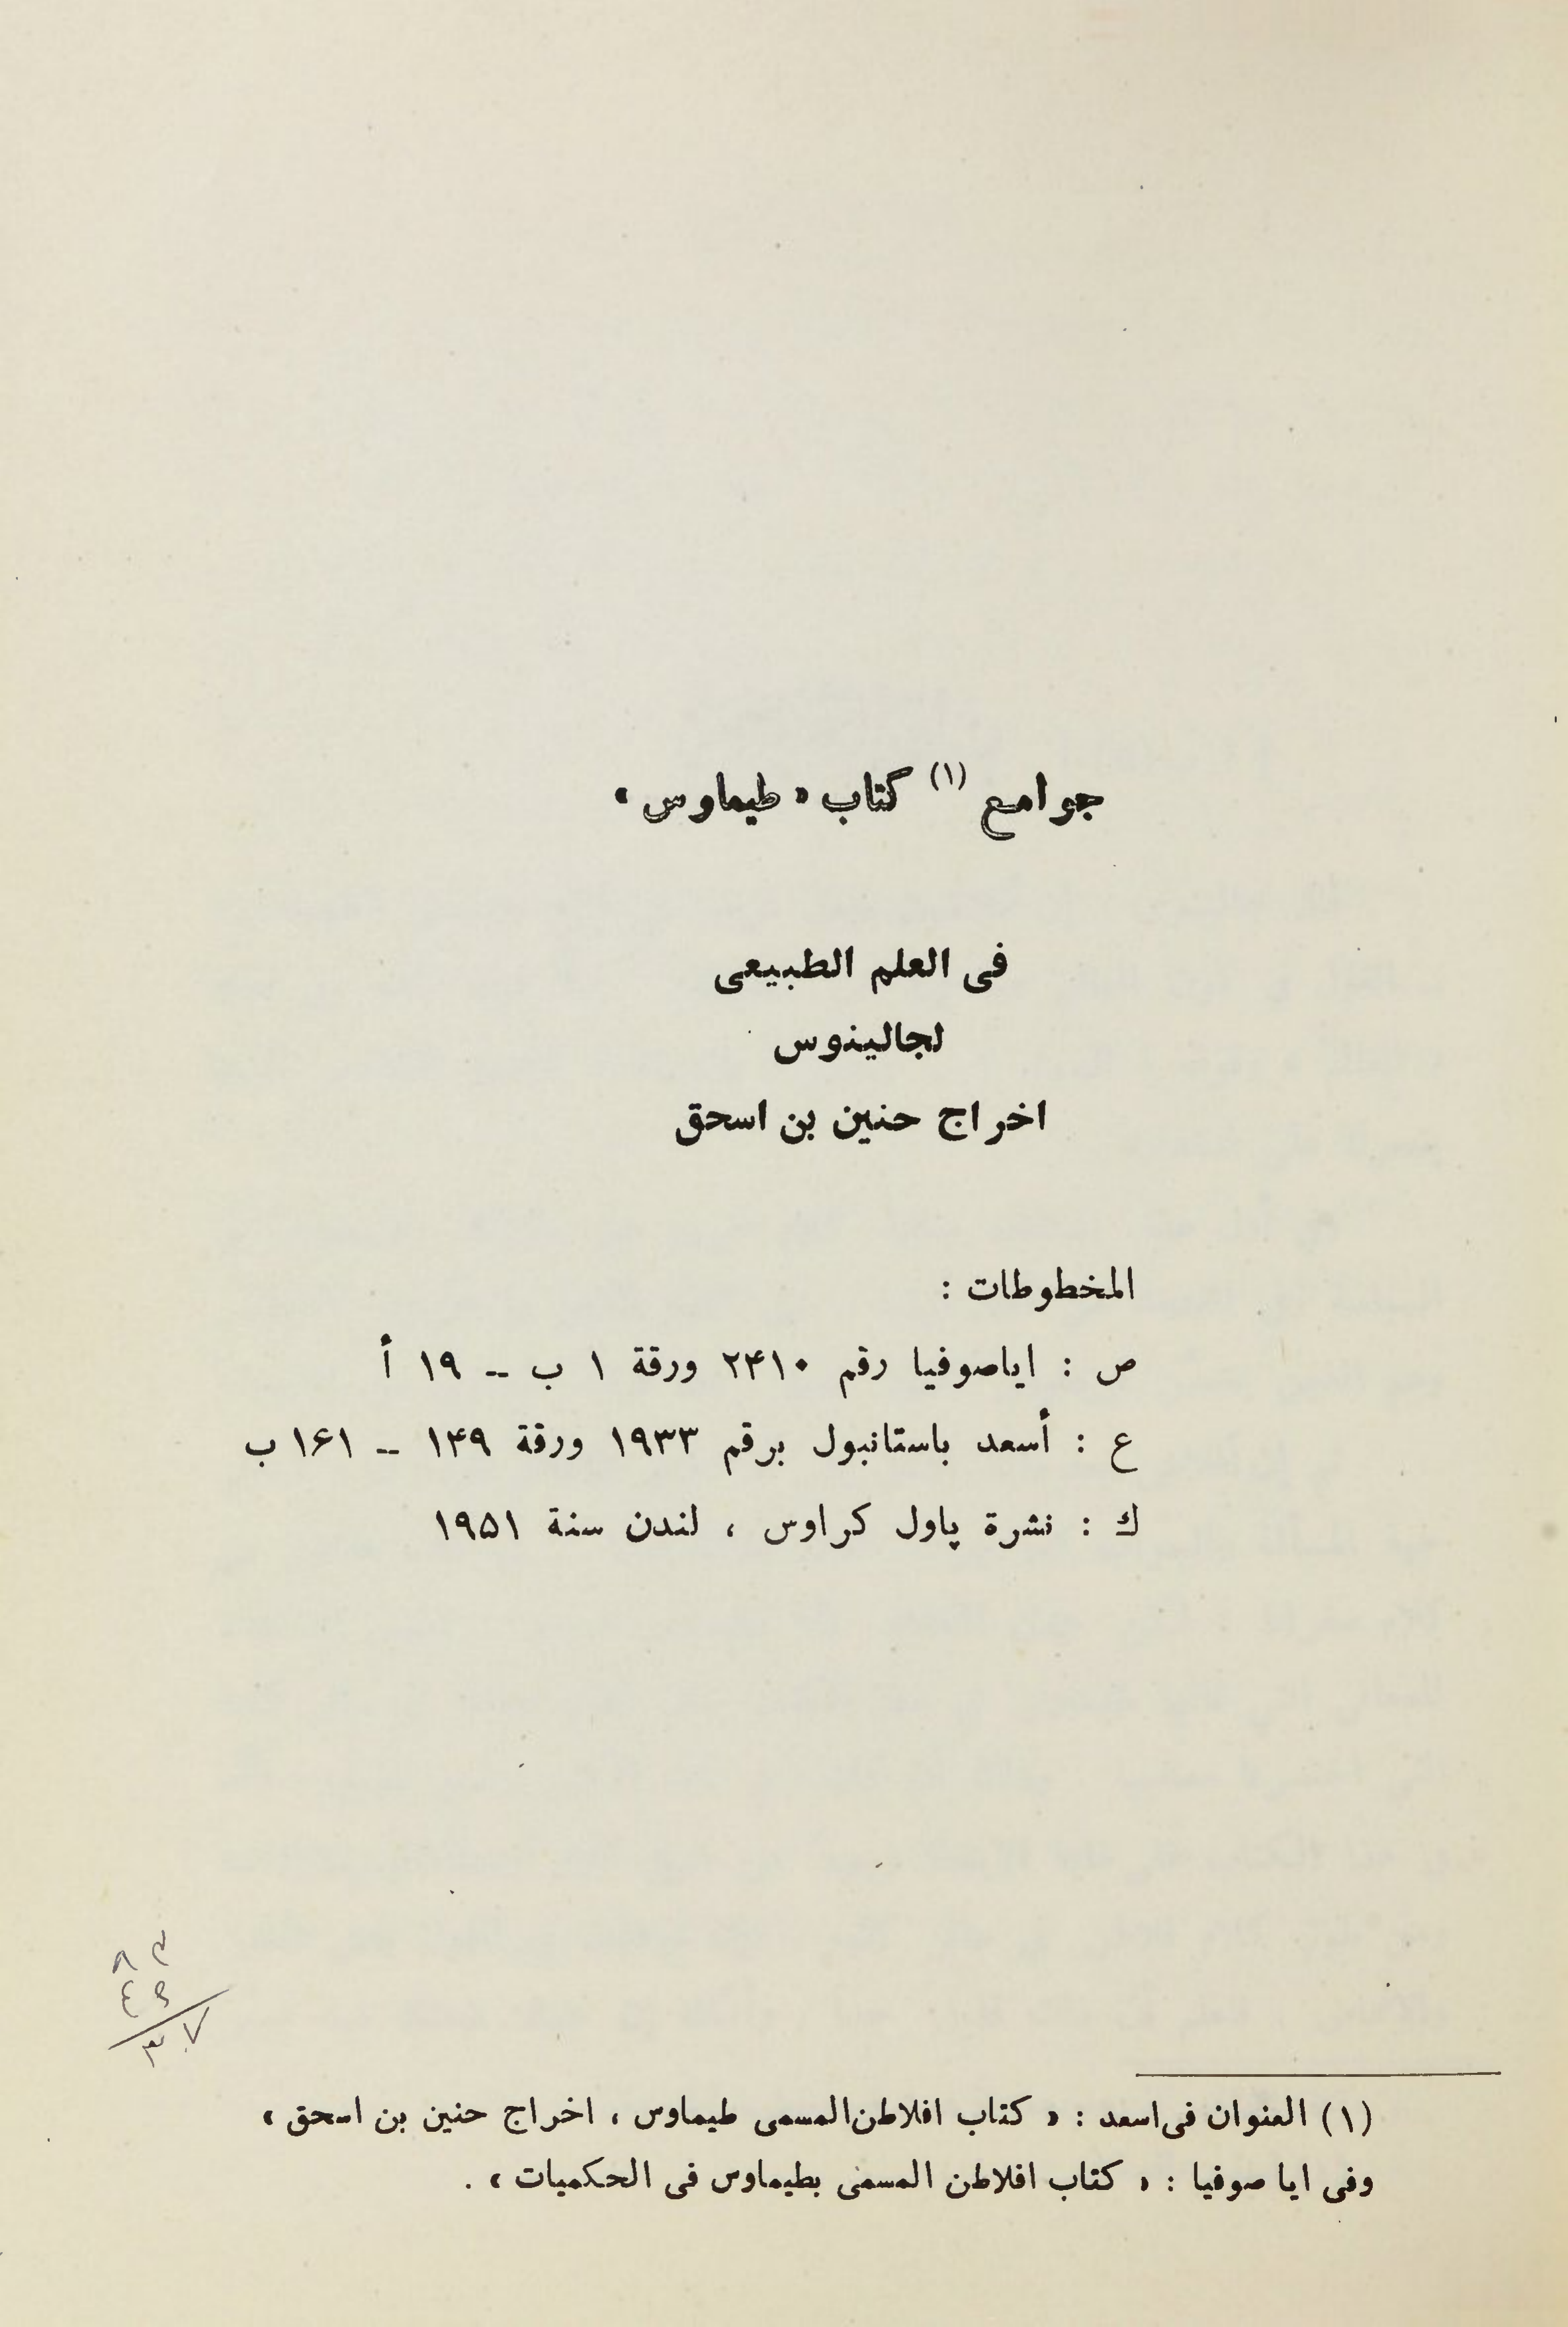 جوامع (١) كتاب « طيماوس »
فى العلم الطبيعى
لجالينوس
اخراج حنين بن اسحق
المخطوطات :
ص : اياصوفيا رقم ۲۴۱۰ ورقة ۱ ب -- ۱۹ أ
ع : أسعد باستانبول برقم ۱۹۳۳ ورقة ۱۴۹ -- ۱۶۱ ب
ك : نشرة پاول كراوس ، لندن سنة ۱۹۵۱
(١) العنوان فى اسعد : « كتاب افلاطن المسمى طيماوس ، اخراج حنين بن اسحق »
وفى ايا صوفيا : « كتاب افلاطن المسمى بطيماوس فى الحكميات » .